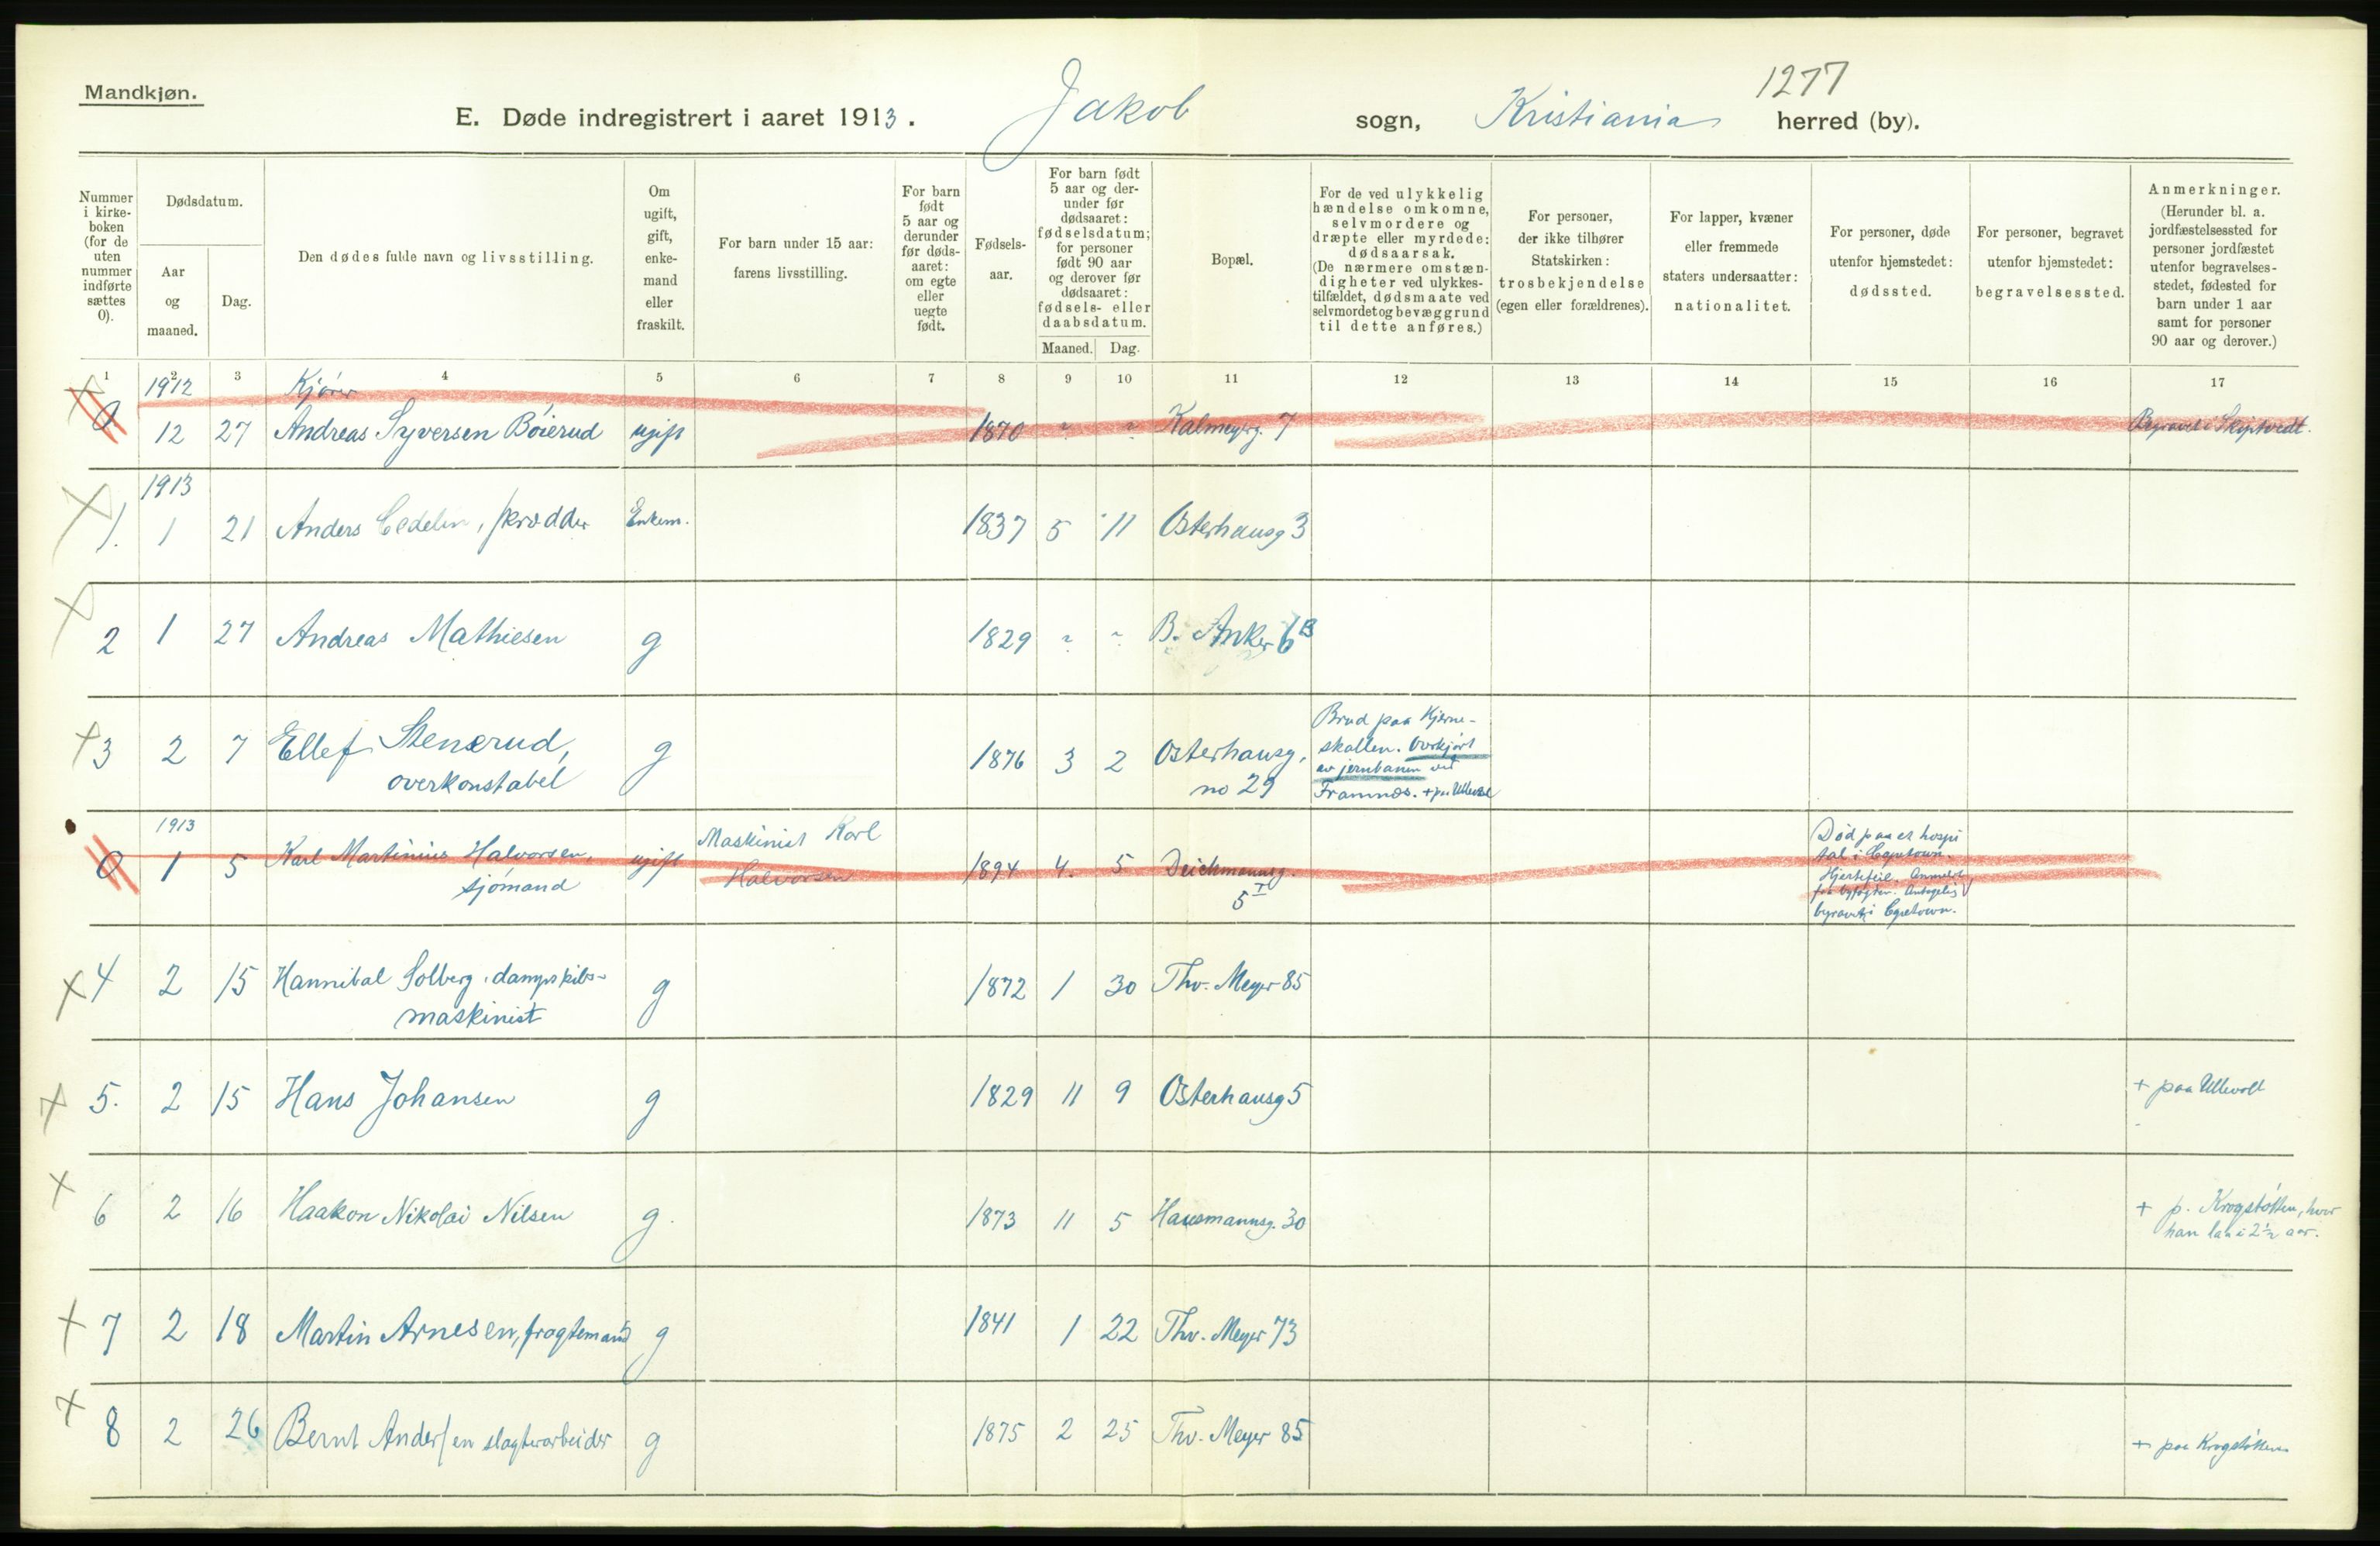 Mandkjøn.
1277
E. Døde indregistrert i aaret 1913. Jakob sogn, Kristiania herred (by).
Nummer i kirkeboken (for de uten nummer indførte sættes 0).
Dødsdatum.
Aar og maaned.
Dag.
Den dødes fulde navn og livsstilling.
Om ugift, gift, enkemand eller fraskilt.
For barn under 15 aar: farens livsstilling.
For barn født 5 aar og derunder før dødsaaret: om egte eller uegte født.
Fødselsaar.
For barn født 5 aar og derunder før dødsaaret: fødselsdatum; for personer født 90 aar og derover før dødsaaret: fødsels- eller daabsdatum.
Maaned. Dag.
Bopæl.
For de ved ulykkelig hændelse omkomne, selvmordere og dræpte eller myrdede: dødsaarsak. (De nærmere omstændigheter ved ulykkestilfældet, dødsmaate ved selvmordet og bevæggrund til dette anføres.)
For personer, der ikke tilhører Statskirken: trosbekjendelse (egen eller forældrenes).
For lapper, kvæner eller fremmede staters undersaatter: nationalitet.
For personer, døde utenfor hjemstedet: dødssted.
For personer, begravet utenfor hjemstedet: begravelsessted.
Anmerkninger. (Herunder bl. a. jordfæstelsessted for personer jordfæstet utenfor begravelsesstedet, fødested for barn under 1 aar samt for personer 90 aar og derover.)
1 2 3 4 5 6 7 8 9 10 11 12 13 14 15 16 17
1912 Kjører
0 12 27 Andreas Syversen Böierud ugift 1870 " " Kalmeyerg. 7 Begravet i Skiptvedt.
1913
1. 1 21 Anders Cedelin, skrædder Enkem. 1837 5 11 Osterhausg 3
2 1 27 Andreas Mathiesen g 1829 " " B. Anker 6B
3 2 7 Ellef Stenerud, overkonstabel g 1876 3 2 Osterhausg. no 29 Brud paa Hjerneskallen. Overkjört av jernbanen ved Framnæs. + paa Ullevaal
1913
0 1 5 Karl Martinius Halvorsen, sjömand ugift Maskinist Karl Halvorsen 1894 4. 5 Deichmannsg. 5 I Död paa et hospital i Capetown. Hjertefeil. Anmeldt fra byfogden. Antagelig begravet i Capetown.
4 2 15 Hannibal Solberg, dampskibsmaskinist g 1872 1 30 Thv. Meyer 85
5. 2 15 Hans Johansen g 1829 11 9 Osterhausg 5 + paa Ullevold
6 2 16 Haakon Nikolai Nilsen g. 1873 11 5 Hausmannsg. 30 + p. Krogstötten, hvor han laa i 2½ aar.
7 2 18 Martin Arnesen, fragtemand g 1841 1 22 Thv. Meyer 73
8 2 26 Bernt Andersen slagterarbeider g 1875 2 25 Thv. Meyer 85 + paa Krogstötten